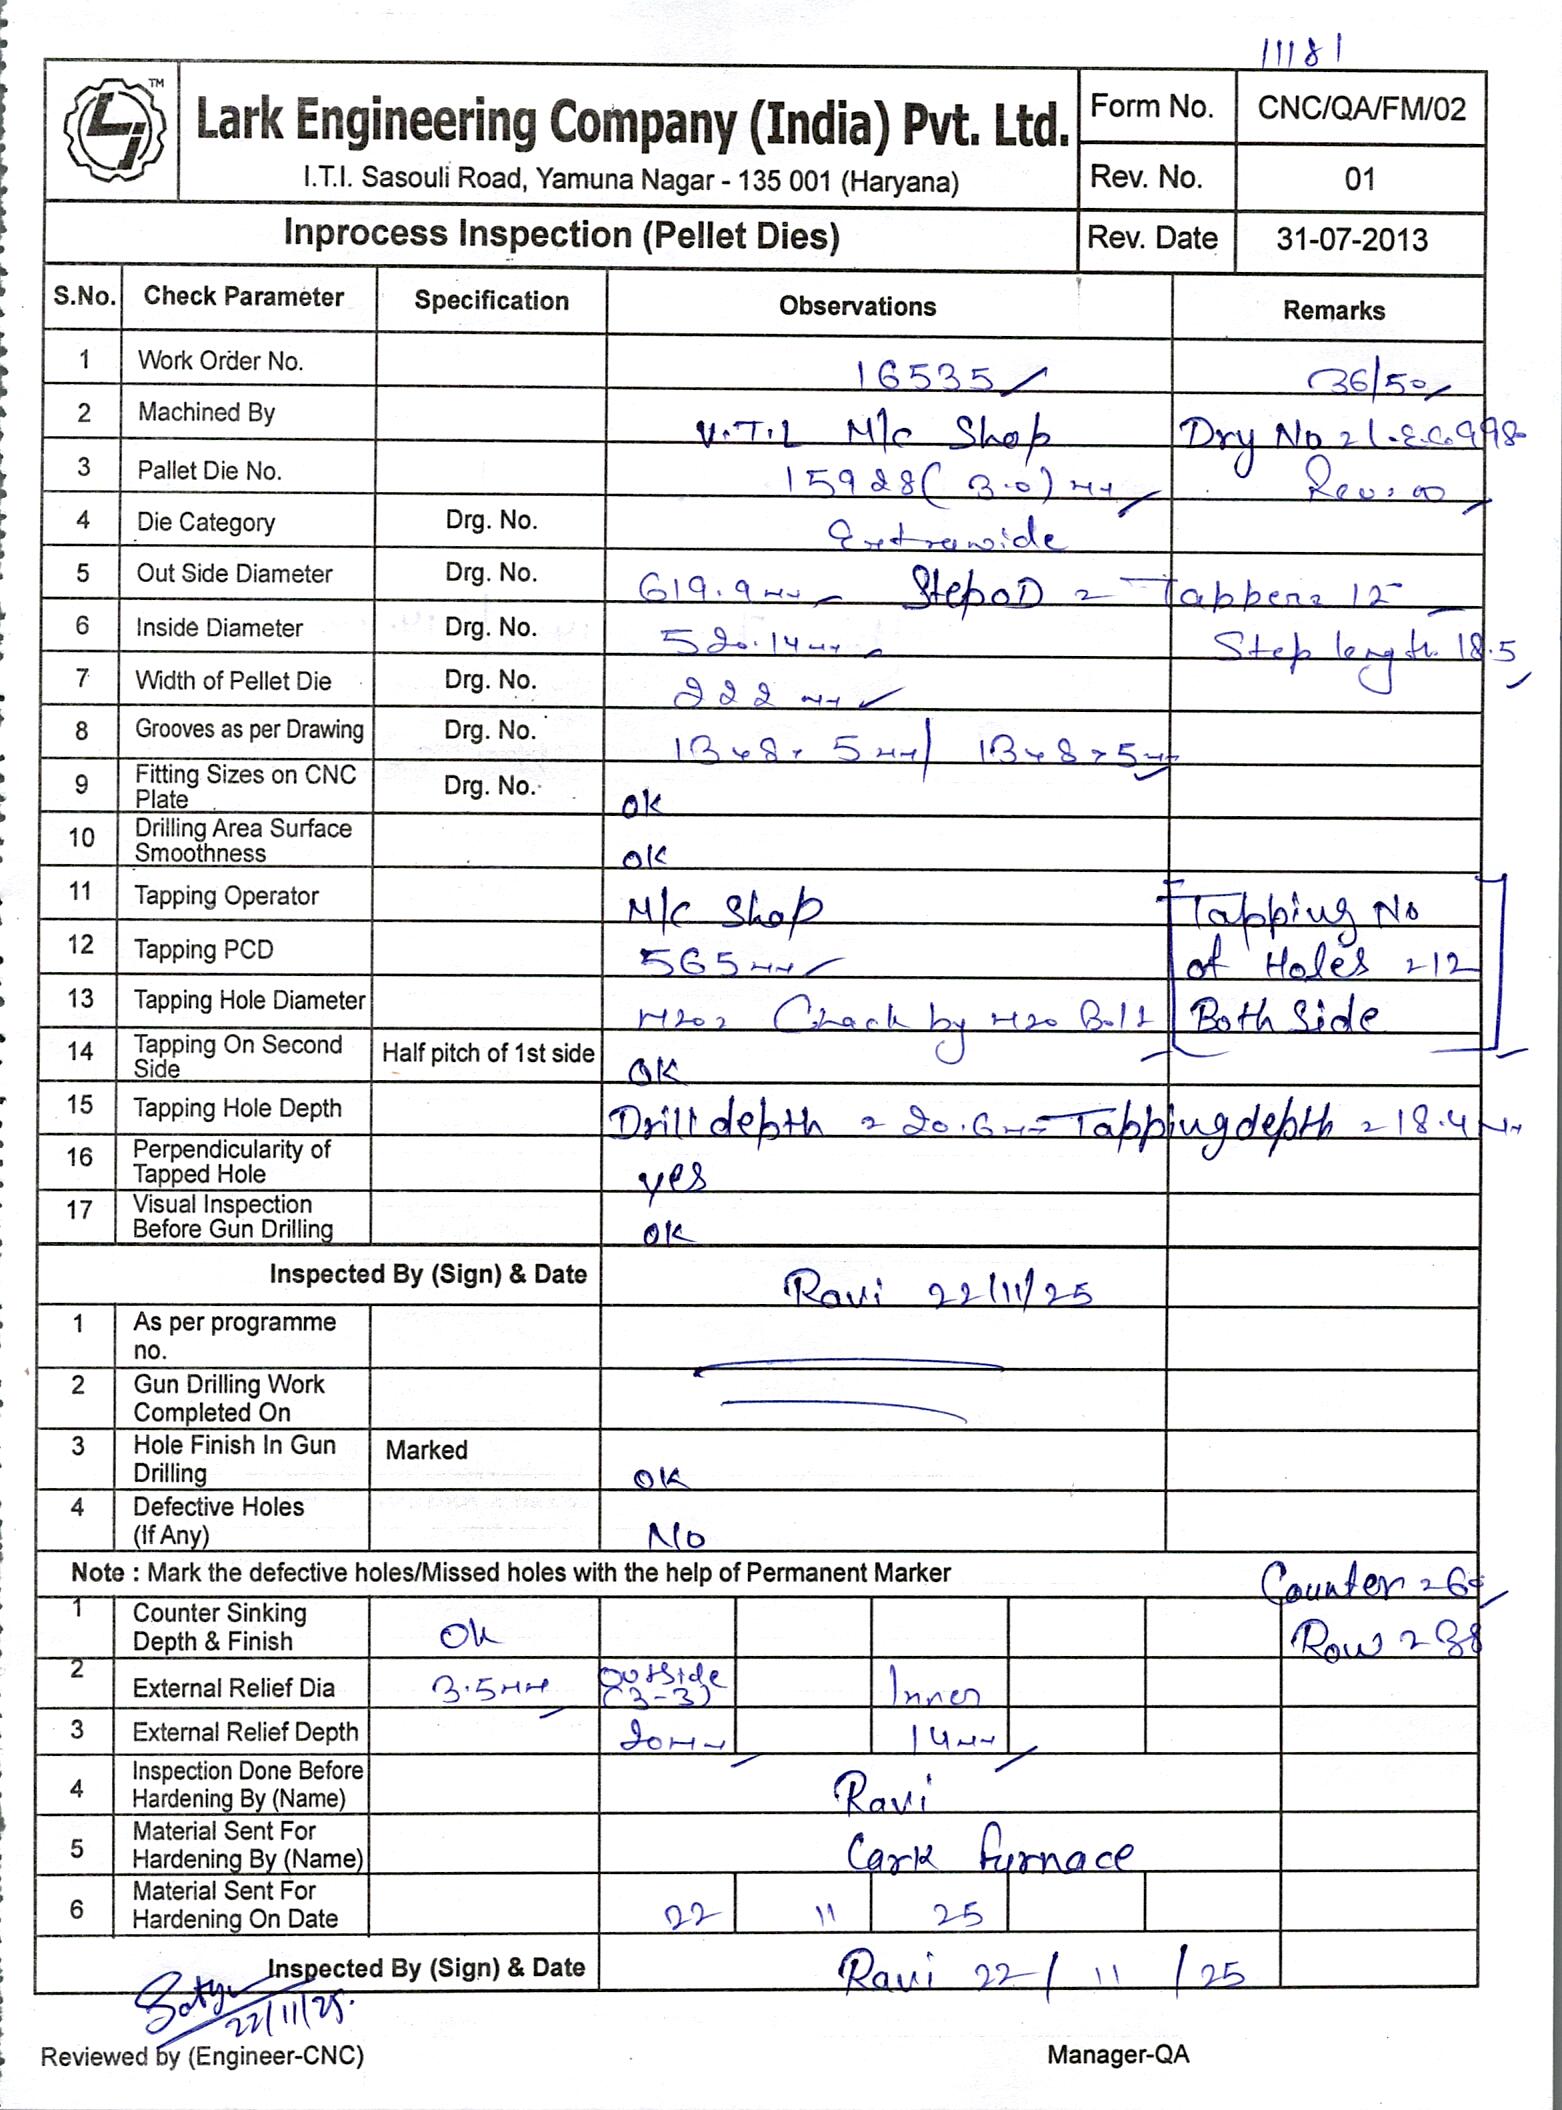 11181
TM
Lark Engineering Company (India) Pvt. Ltd.
I.T.I. Sasouli Road, Yamuna Nagar - 135 001 (Haryana)
Form No. CNC/QA/FM/02
Rev. No. 01
Inprocess Inspection (Pellet Dies) Rev. Date 31-07-2013
S.No. Check Parameter Specification Observations Remarks
1 Work Order No. 16535 36/50
2 Machined By V.T.L M/c Shop Dry No = L.E.C.998
3 Pallet Die No. 15928 (3.0) mm Rev: 00
4 Die Category Drg. No. Extrawide
5 Out Side Diameter Drg. No. 619.9 mm Step OD = Tapper = 15
6 Inside Diameter Drg. No. 520.14 mm Step length 18.5
7 Width of Pellet Die Drg. No. 222 mm
8 Grooves as per Drawing Drg. No. 5 mm / 5 mm
9 Fitting Sizes on CNC Plate Drg. No. OK
10 Drilling Area Surface Smoothness OK
11 Tapping Operator M/c Shop Tapping No
12 Tapping PCD 565 mm of Holes = 12
13 Tapping Hole Diameter M20 = Check by M20 Bolt Both Side
14 Tapping On Second Side Half pitch of 1st side OK
15 Tapping Hole Depth Drill depth = 20.6 mm Tapping depth = 18.4 mm
16 Perpendicularity of Tapped Hole yes
17 Visual Inspection Before Gun Drilling OK
Inspected By (Sign) & Date Ravi 22/11/25
1 As per programme no.
2 Gun Drilling Work Completed On
3 Hole Finish In Gun Drilling Marked OK
4 Defective Holes (If Any) No
Note : Mark the defective holes/Missed holes with the help of Permanent Marker Counter = 60
1 Counter Sinking Depth & Finish OK Row = 38
2 External Relief Dia 3.5 mm Outside (3-3) Inner
3 External Relief Depth 20 mm 14 mm
4 Inspection Done Before Hardening By (Name) Ravi
5 Material Sent For Hardening By (Name) Lark furnace
6 Material Sent For Hardening On Date 22 11 25
Inspected By (Sign) & Date Ravi 22/11/25
Satyu
22/11/25.
Reviewed by (Engineer-CNC) Manager-QA